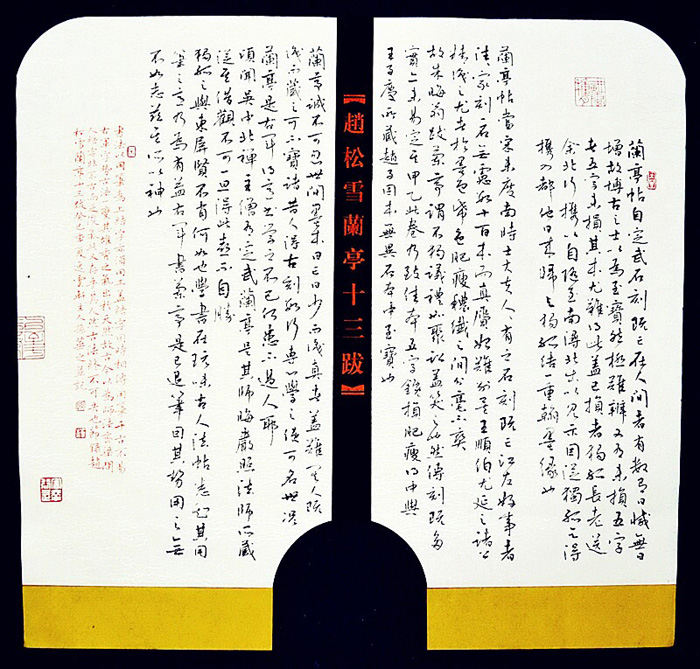 蘭亭帖自定武石刻既亡在人間者有數有日減無日
增故博古之士以為至寶然極難辨又有未損五字
者五字未損其本尤難得此蓋已損者獨孤長老送
余北行攜以自隨至南潯北出以見示因從獨孤乞得
攜入都他日來歸與獨孤結重翰墨緣也
蘭亭帖當宋未度南時士大夫人人有之石刻既亡江左好事者
家刻一石無慮數十百本而真贋始難別矣王順伯尤延之諸公
精識之尤者於墨色紙色肥瘦穠纖之間分毫不爽
故朱晦翁跋蘭亭謂不獨議禮如聚訟蓋笑之也然傳刻既多
實亦未易定其甲乙此卷乃致佳本五字鑱損肥瘦得中與
王子慶所藏趙子固本無異石本中至寶也
【趙松雪蘭亭十三跋】
蘭亭誠不可忽世間墨本日亡日少而識真者蓋難其人既
識而藏之可不寶諸昔人得古刻數行專心學之便可名世況
蘭亭是右軍得意書學之不已何患不過人耶
頃聞吳中北禪主僧有定武蘭亭是其師晦巖照法師所藏
從其借觀不可一旦得此喜不自勝
獨孤之與東屏賢不肖何如也學書在玩味古人法帖悉知其用
筆之意乃為有益右軍書蘭亭是已退筆因其勢用之無
不如志茲其所以神也
書法以用筆為上而結字亦須用工蓋結字因時相傳用筆千古不易
右軍字勢古法一變其雄秀之氣出於天然故古今以為師法齊梁間
人結字非不古而乏俊氣此又存乎其人然古法終不可失也
松雪蘭亭十三跋癸巳